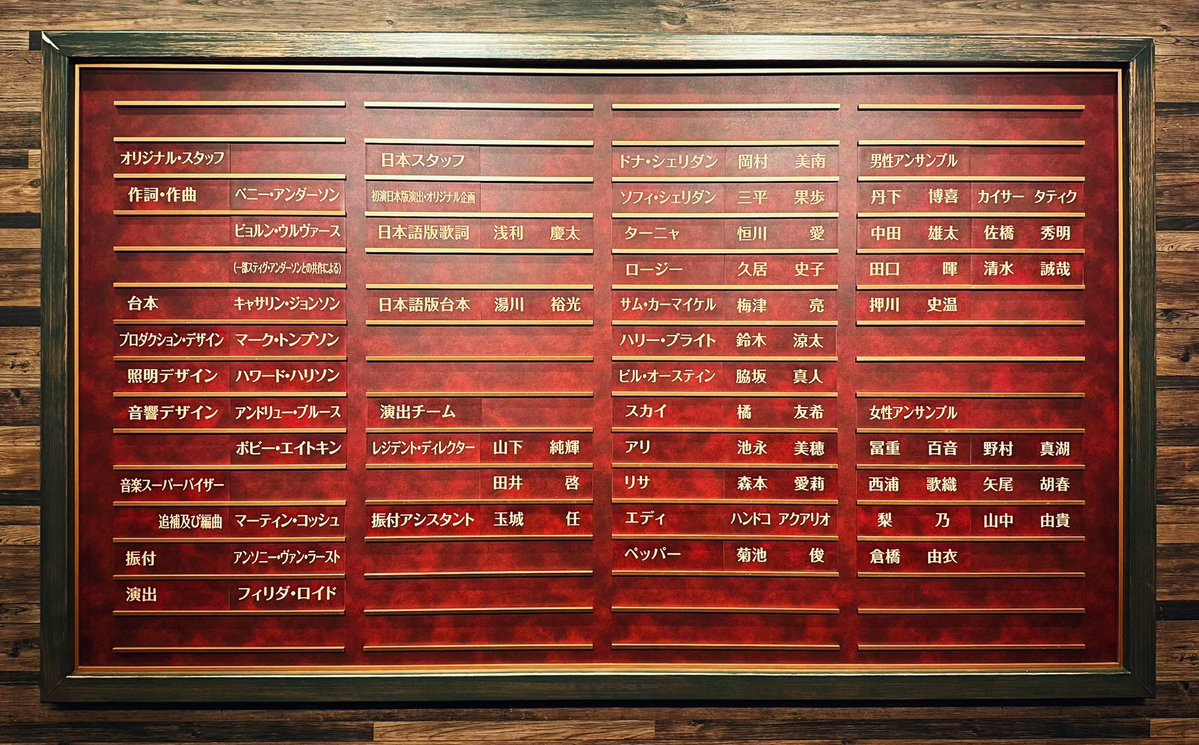 オリジナル・スタッフ
作詞・作曲 ベニー・アンダーソン
ビョルン・ウルヴァース
(一部スティグ・アンダーソンとの共作による)
台本 キャサリン・ジョンソン
プロダクション・デザイン マーク・トンプソン
照明デザイン ハワード・ハリソン
音響デザイン アンドリュー・ブルース
ボビー・エイトキン
音楽スーパーバイザー
追補及び編曲 マーティン・コッシュ
振付 アンソニー・ヴァン・ラースト
演出 フィリダ・ロイド
日本スタッフ
初演日本版演出・オリジナル企画
日本語版歌詞 浅利 慶太
日本語版台本 湯川 裕光
演出チーム
レジデント・ディレクター 山下 純輝
田井 啓
振付アシスタント 玉城 任
ドナ・シェリダン 岡村 美南
ソフィ・シェリダン 三平 果歩
ターニャ 恒川 愛
ロージー 久居 史子
サム・カーマイケル 梅津 亮
ハリー・ブライト 鈴木 涼太
ビル・オースティン 脇坂 真人
スカイ 橘 友希
アリ 池永 美穂
リサ 森本 愛莉
エディ ハンドコ アクアリオ
ペッパー 菊池 俊
男性アンサンブル
丹下 博喜 カイサー タティク
中田 雄太 佐橋 秀明
田口 暉 清水 誠哉
押川 史温
女性アンサンブル
冨重 百音 野村 真湖
西浦 歌織 矢尾 胡春
梨 乃 山中 由貴
倉橋 由衣